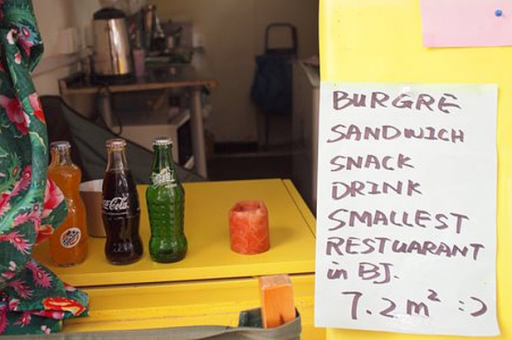 Coca-Cola
BURGRE
SANDWICH
SNACK
DRINK
SMALLEST
RESTUARANT
in BJ.
7.2 m² :)